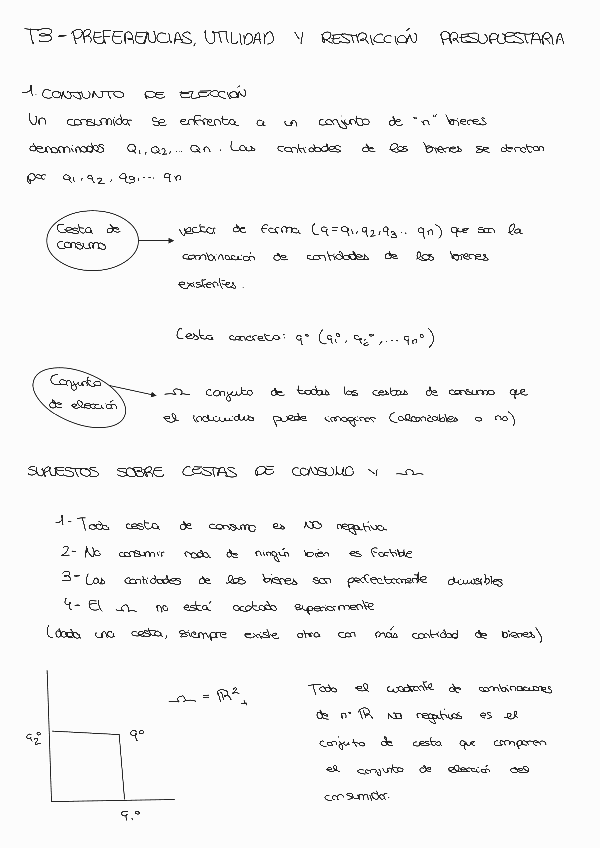 T3 - PREFERENCIAS, UTILIDAD Y RESTRICCIÓN PRESUPUESTARIA
1. CONJUNTO DE ELECCIÓN
Un consumidor se enfrenta a un conjunto de "n" bienes
denominados Q1, Q2, ... Qn. Las cantidades de los bienes se denotan
por q1, q2, q3, ... qn
Cesta de
consumo
vector de forma (q=q1,q2,q3.. qn) que son la
combinación de cantidades de los bienes
existentes.
Cesta concreta: q° (q1°, q2°, ... qn°)
Conjunto
de elección
Ω conjunto de todas las cestas de consumo que
el individuo puede imaginar (alcanzables o no)
SUPUESTOS SOBRE CESTAS DE CONSUMO Y Ω
1- Toda cesta de consumo es NO negativa
2- No consumir nada de ningún bien es factible
3- Las cantidades de los bienes son perfectamente divisibles
4- El Ω no está acotado superiormente
(dada una cesta, siempre existe otra con más cantidad de bienes)
Ω = ℝ²₊
q2°
q°
q1°
Todo el cuadrante de combinaciones
de nº ℝ NO negativos es el
conjunto de cesta que componen
el conjunto de elección del
consumidor.